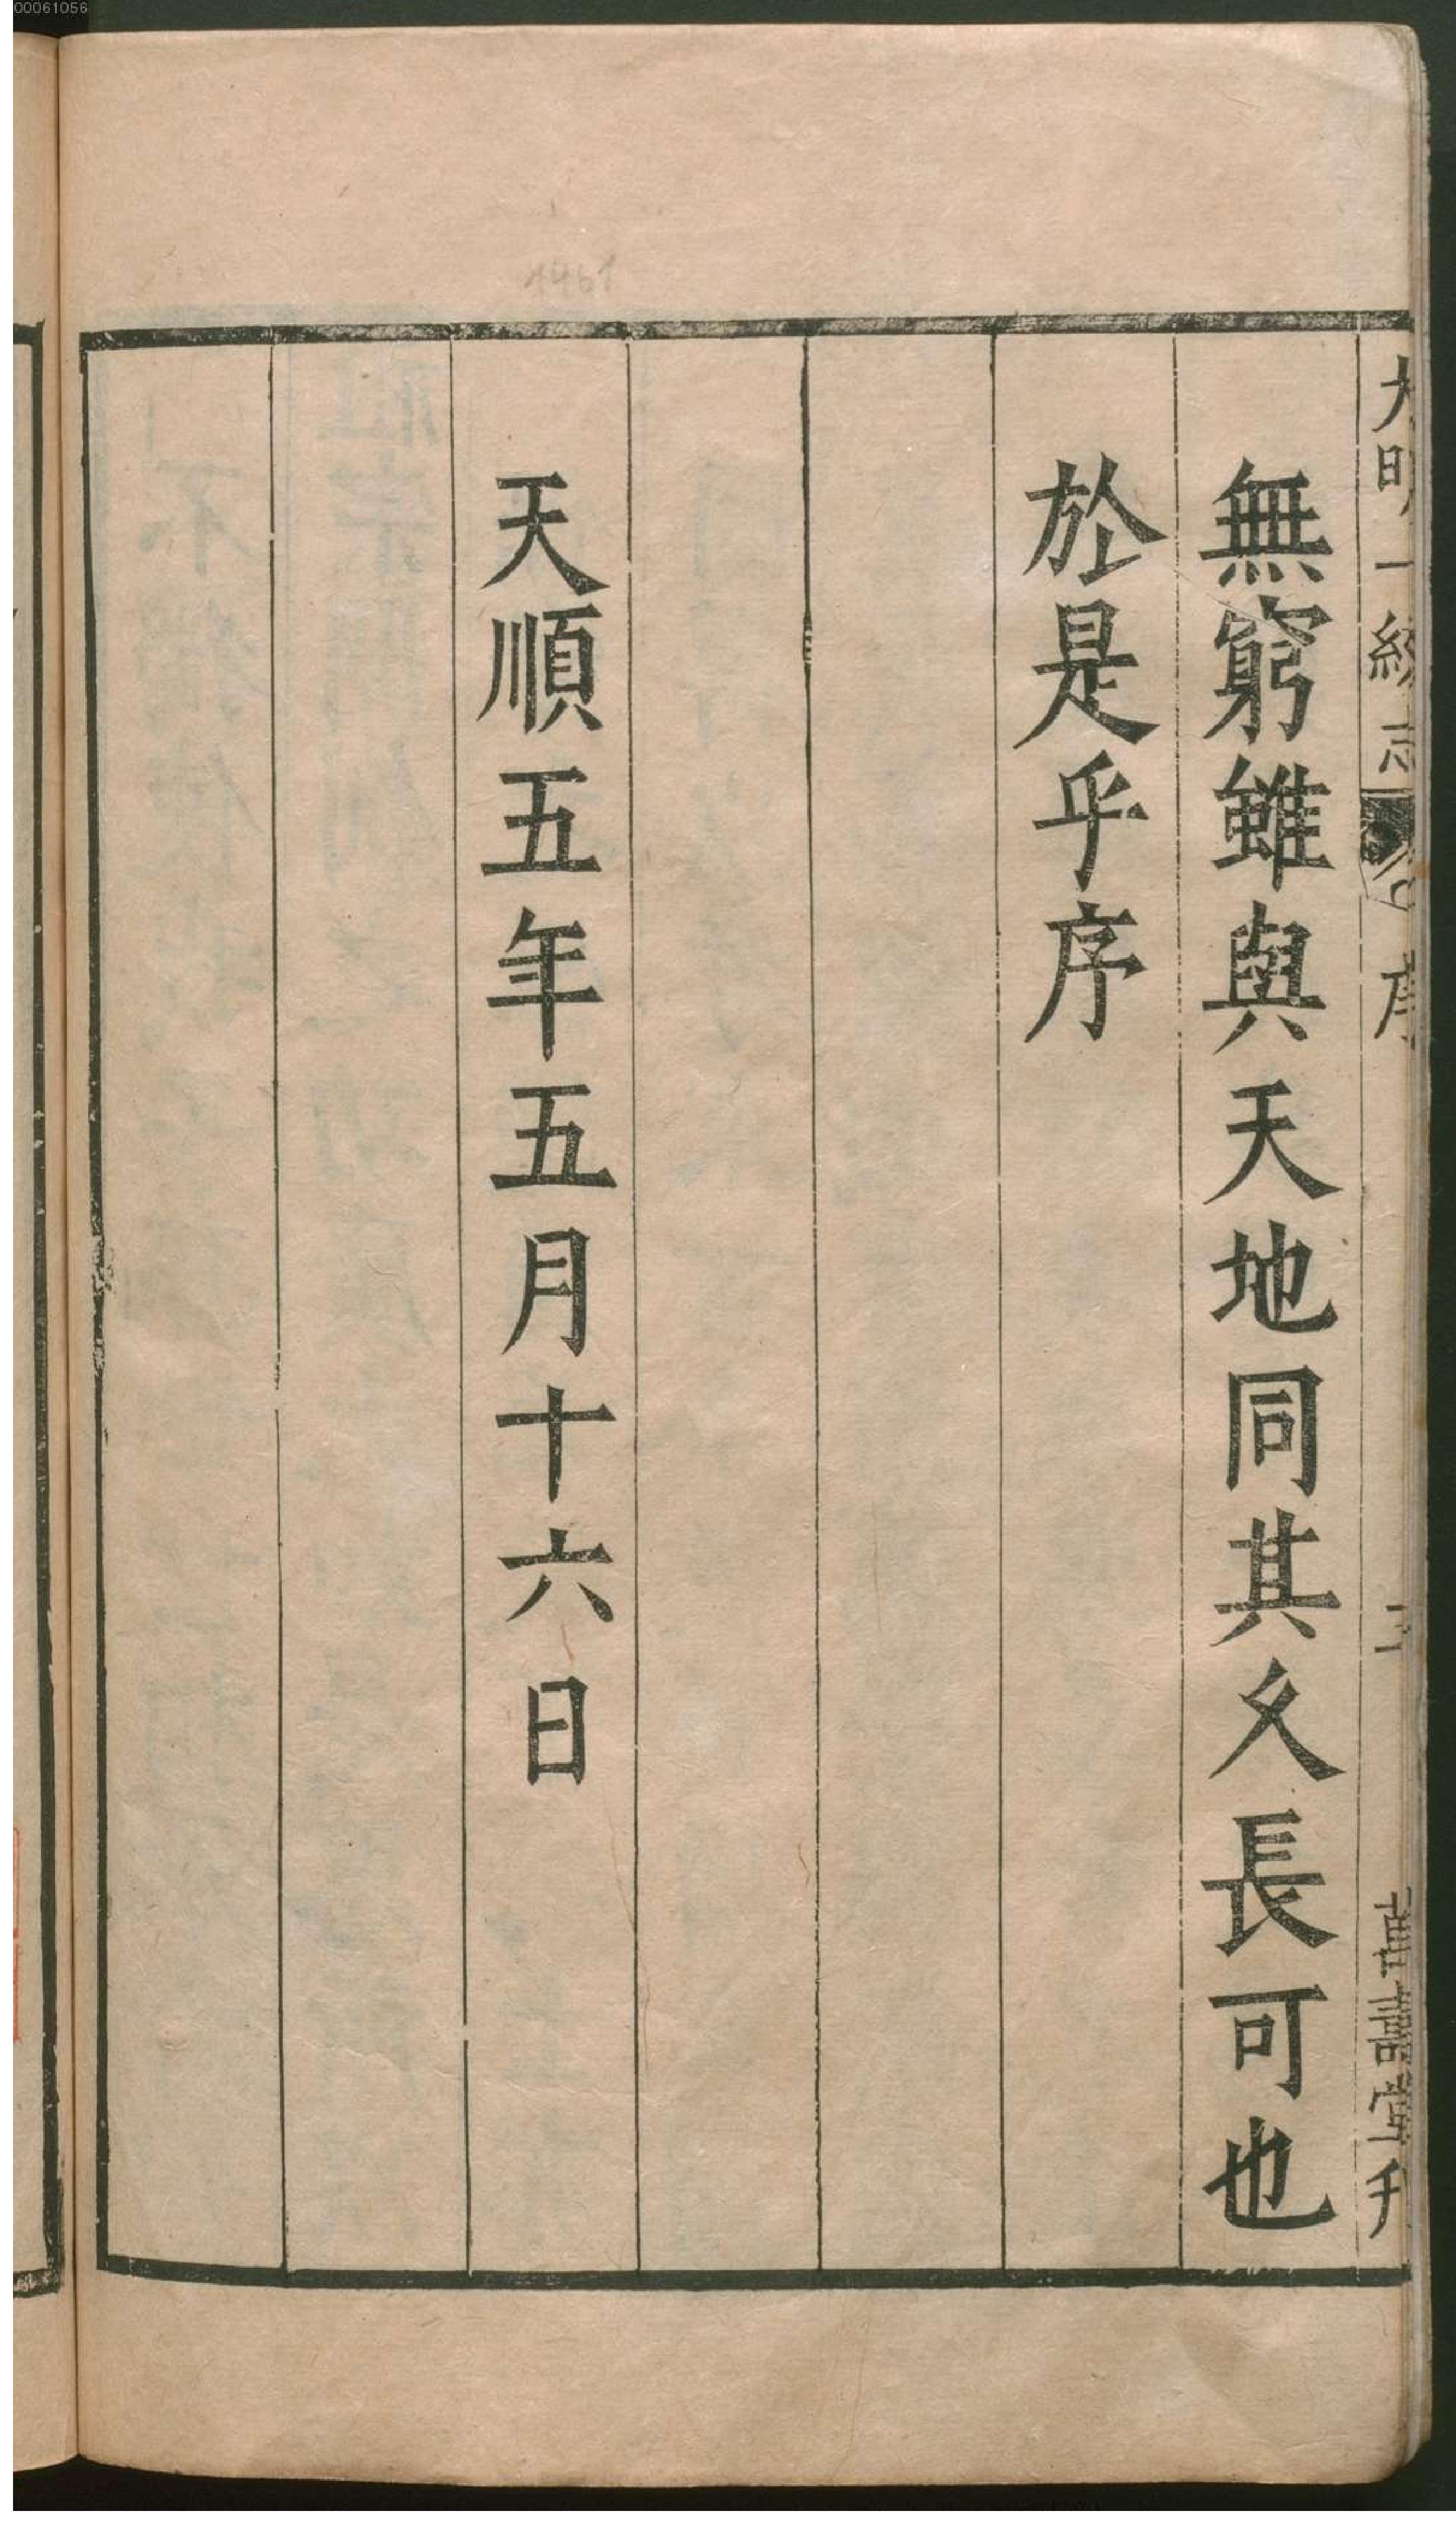 00061056
1461
大明一統志 序 三 萬壽堂刊
無窮雖與天地同其久長可也
於是乎序
天順五年五月十六日